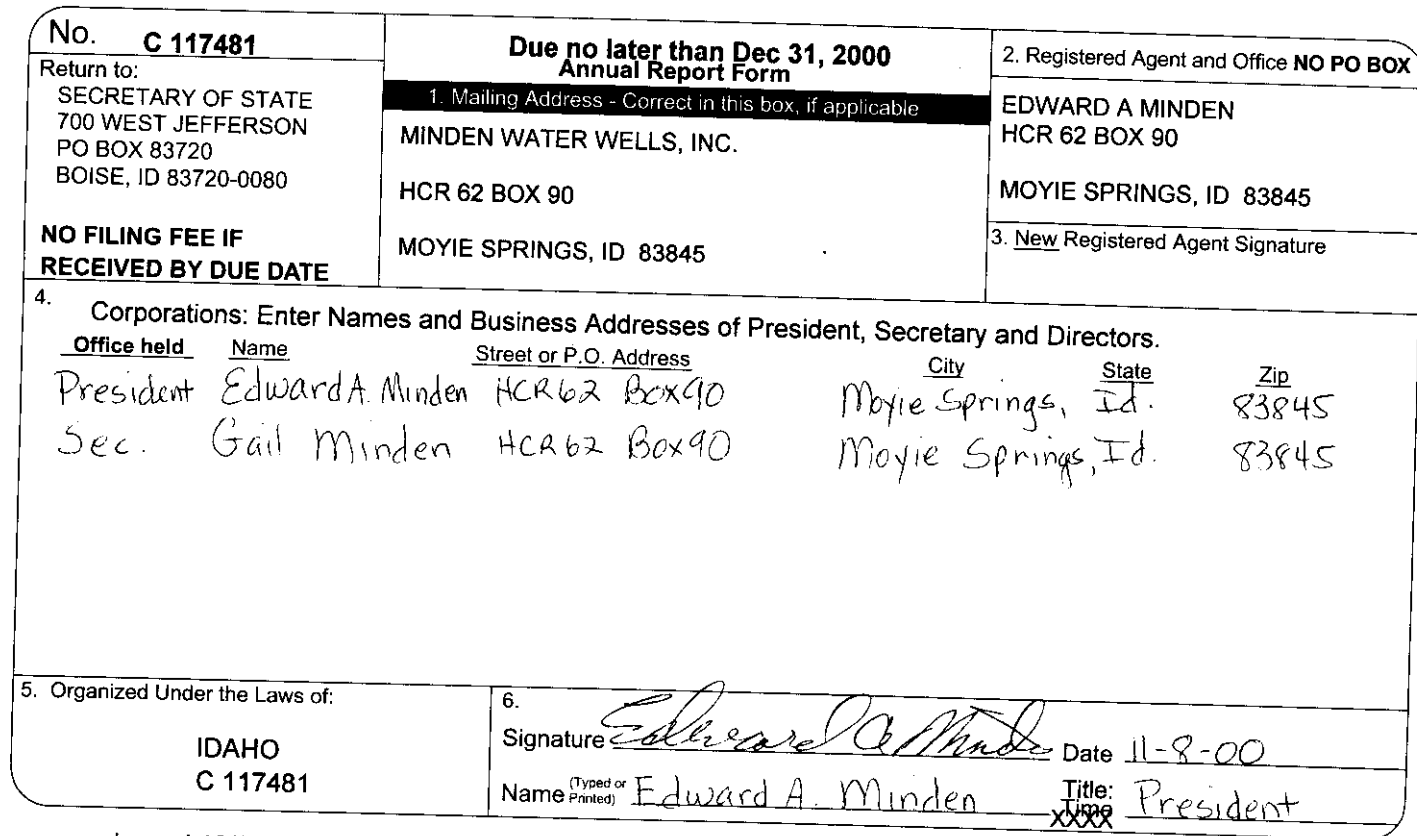 No. C 117481
Return to:
SECRETARY OF STATE
700 WEST JEFFERSON
PO BOX 83720
BOISE, ID 83720-0080
NO FILING FEE IF
RECEIVED BY DUE DATE
Due no later than Dec 31, 2000
Annual Report Form
1. Mailing Address - Correct in this box, if applicable
MINDEN WATER WELLS, INC.
HCR 62 BOX 90
MOYIE SPRINGS, ID 83845
2. Registered Agent and Office NO PO BOX
EDWARD A MINDEN
HCR 62 BOX 90
MOYIE SPRINGS, ID 83845
3. New Registered Agent Signature
4. Corporations: Enter Names and Business Addresses of President, Secretary and Directors.
Office held Name Street or P.O. Address City State Zip
President Edward A. Minden HCR62 Box90 Moyie Springs, Id. 83845
Sec. Gail Minden HCR62 Box90 Moyie Springs, Id. 83845
5. Organized Under the Laws of:
IDAHO
C 117481
6.
Signature Edward A Minden Date 11-8-00
Name (Typed or Printed) Edward A. Minden Title: President